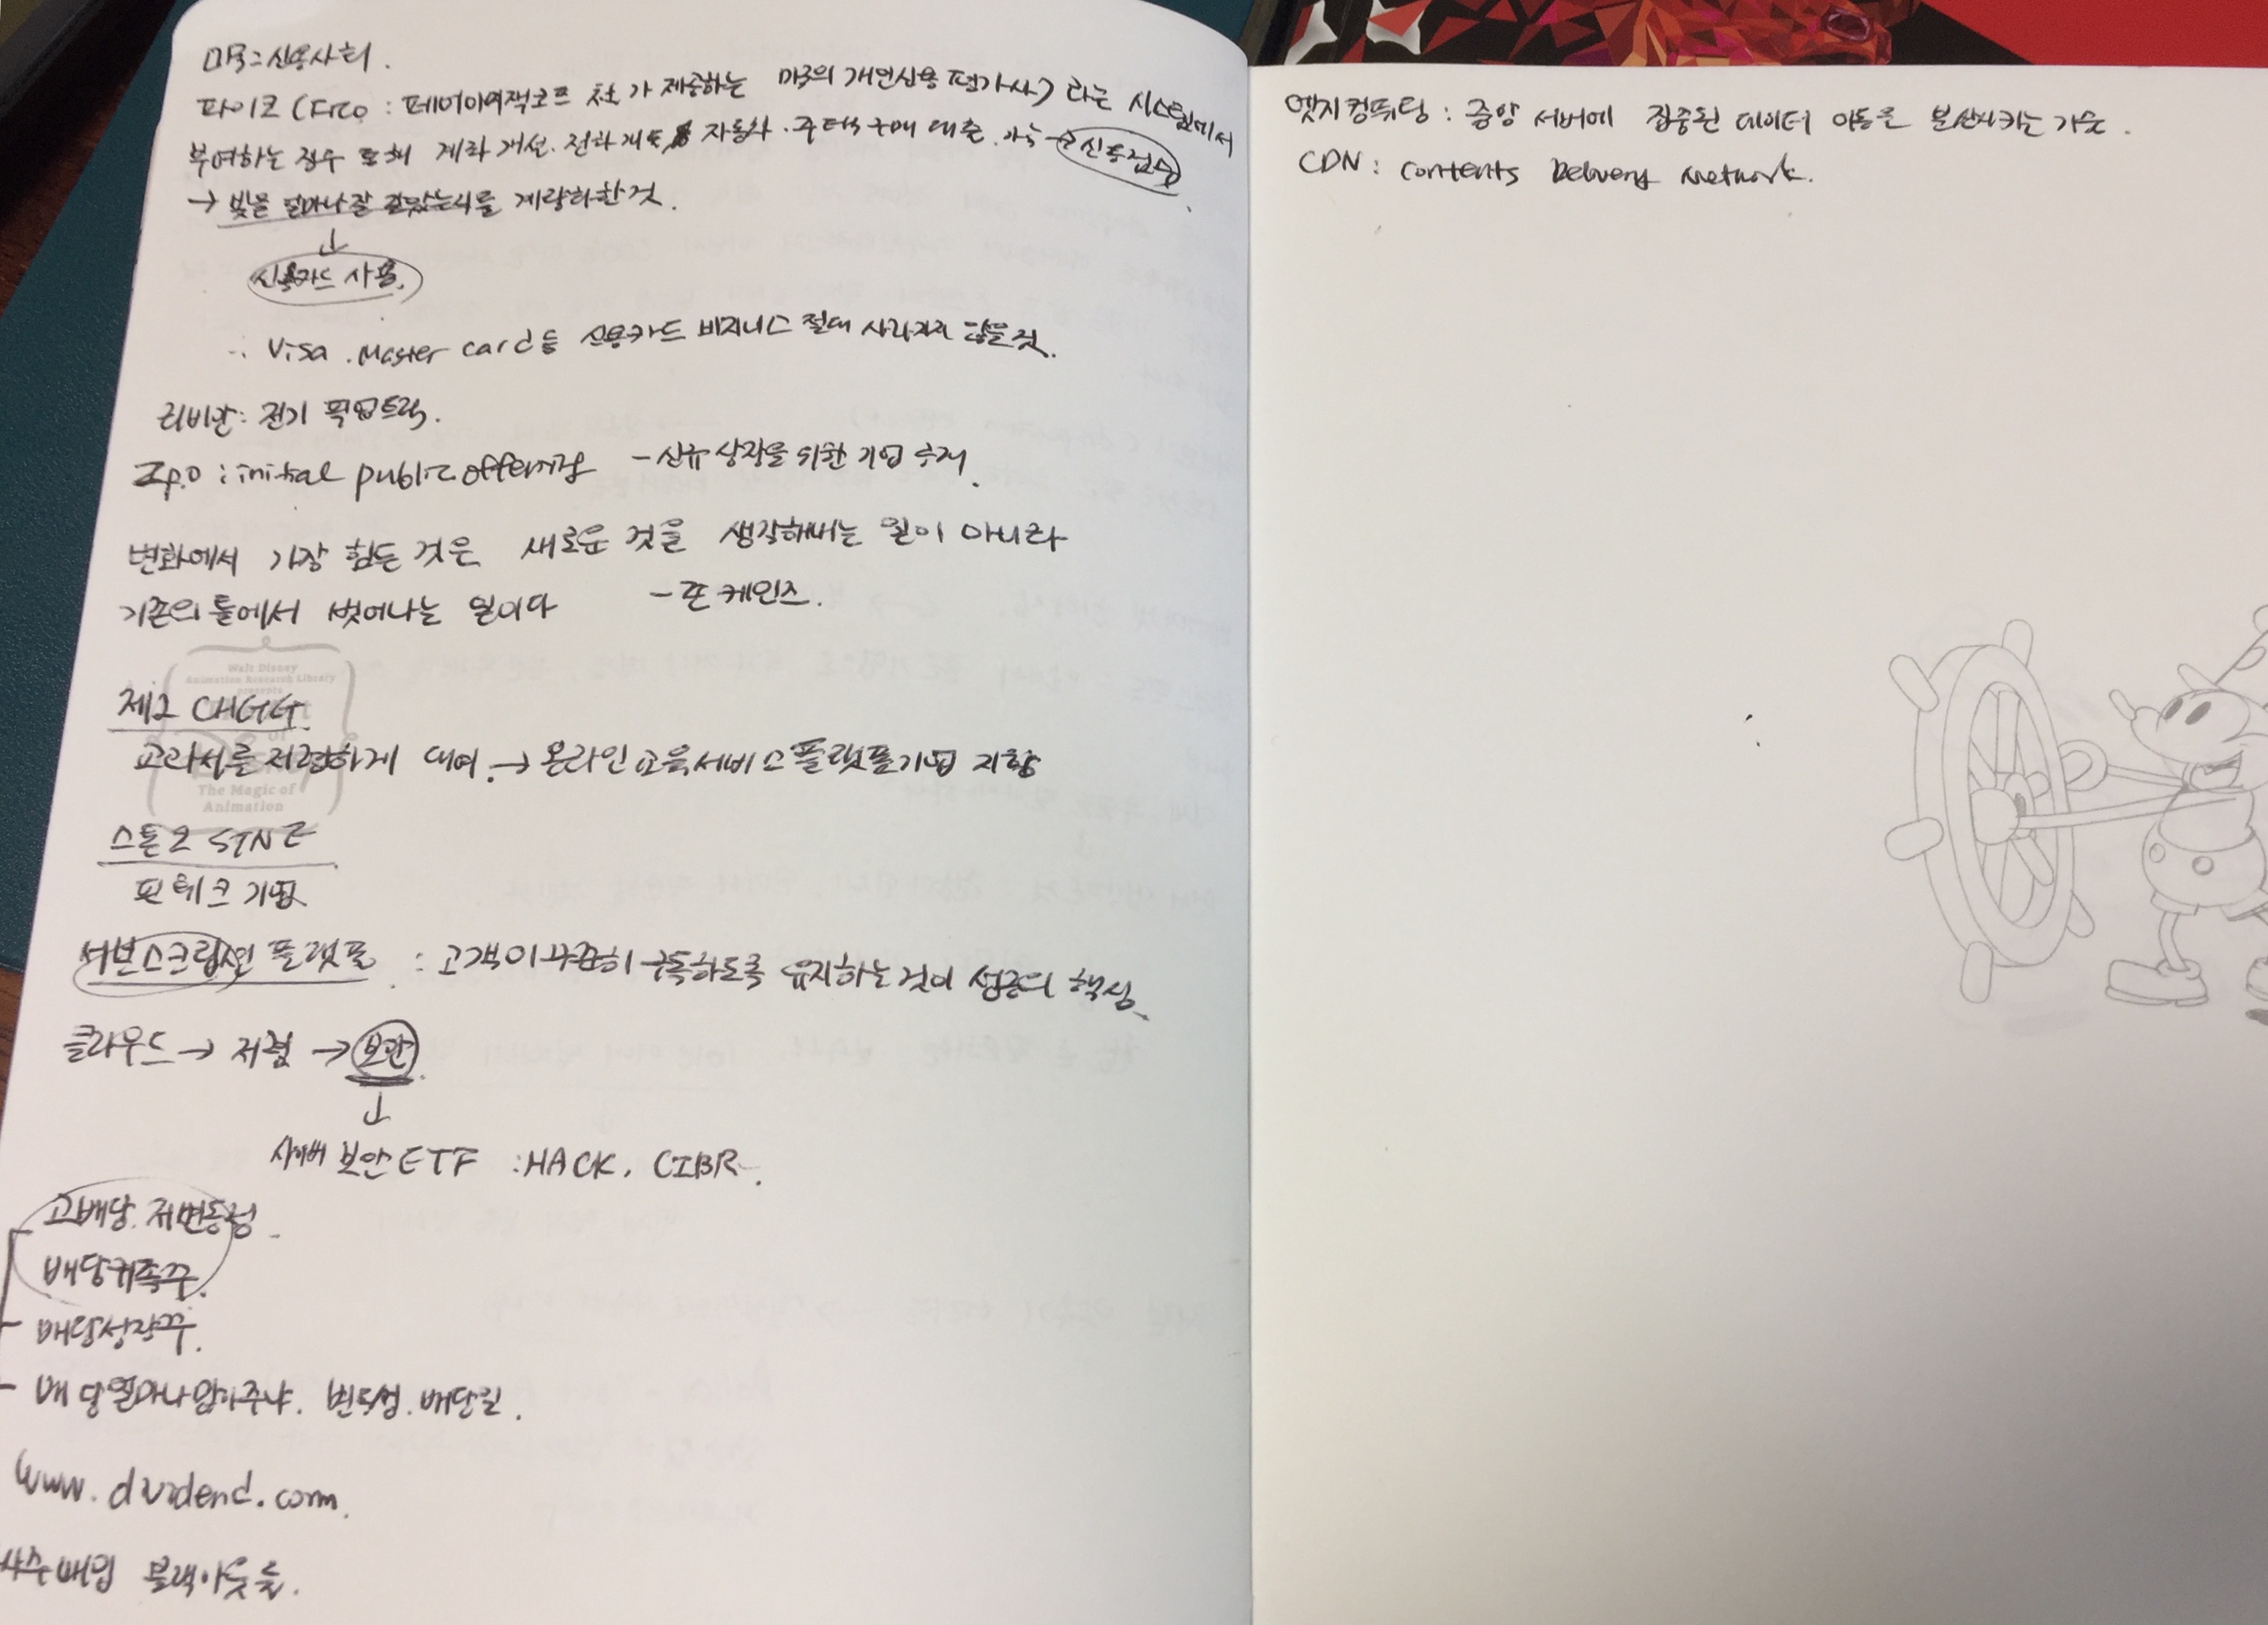 미국 = 신용사회.
파이코 (FICO : 페어아이작코프 社가 제공하는 미국의 개인신용 평가사) 라는 시스템에서
부여하는 점수 토해 계좌 개설. 전화 개통 자동차. 주택 구매 대출. 가능 → 신용점수.
→ 빚을 얼마나 잘 갚았는지를 계량화한 것.
↓
신용카드 사용.
∴ Visa. Master card 등 신용카드 비지니스 절대 사라지지 않을 것.
리비안: 전기 픽업트럭.
I.p.o : initial public offering - 신규 상장을 위한 기업 공개.
변화에서 가장 힘든 것은 새로운 것을 생각해내는 일이 아니라
기존의 틀에서 벗어나는 일이다 - 존 케인즈.
Walt Disney
Animation Research Library
presents
of
The Magic of
Animation
제2 CHGG
교과서를 저렴하게 대여. → 온라인 교육 서비스 플랫폼 기업 지향
스톤코 STNE
핀테크 기업
서브스크립션 플랫폼 : 고객이 꾸준히 구독하도록 유지하는 것이 성공의 핵심.
클라우드 → 저렴 → 보안.
↓
사이버 보안 ETF : HACK. CIBR.
고배당. 저변동성.
배당귀족주.
- 배당성장주.
- 배당 얼마나 많이 주냐. 변동성. 배당일.
www.dividend.com.
자사주매입 블랙아웃
엣지컴퓨팅 : 중앙 서버에 집중된 데이터 이동을 분산시키는 기술.
CDN : Contents Delivery Network.